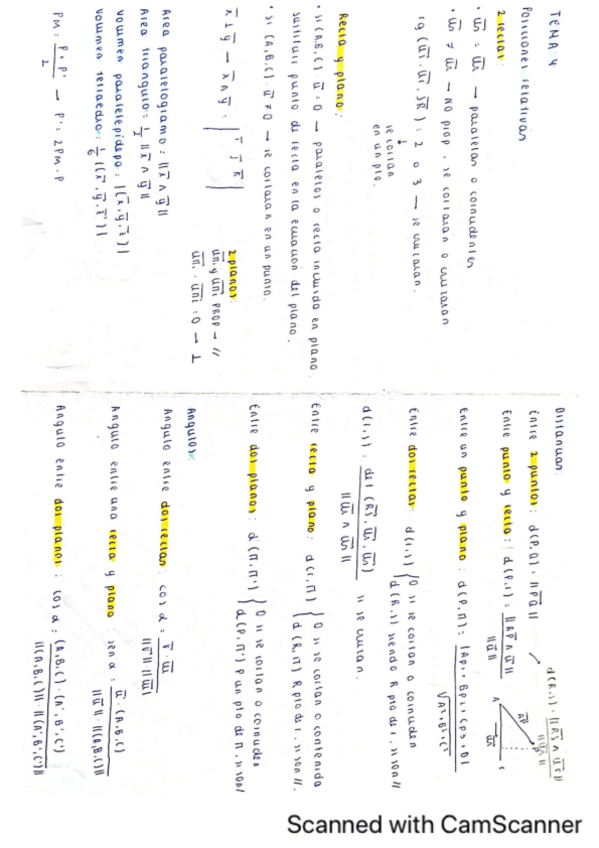 TEMA 4
Posiciones relativas
2 rectas:
· ūs = ūr → paralelas o coincidentes
· ūs ≠ ūr → no prop. se cortarán o cruzarán
rg (ūs, ūr, R̄S) = 2 o 3 → se cruzarán.
↓
se cortan
en un pto.
Recta y plano:
· si (A,B,C) · ū = 0 → paralelos o recta incluida en plano.
sustituir punto de recta en la ecuación del plano.
· si (A,B,C) · ū ≠ 0 → se cortarán en un punto.
x̄ ⊥ ȳ → x̄ ∧ ȳ = | ī j̄ k̄ |
2 planos:
PROP → //
= 0 → ⊥
Área paralelogramo = ||x̄ ∧ ȳ||
Área triángulo = 1/2 ||x̄ ∧ ȳ||
Volumen paralelepípedo = |(x̄, ȳ, z̄)|
Volumen tetraedro = 1/6 |(x̄, ȳ, z̄)|
Pm = (P + P')/2 → P' = 2Pm - P
Distancias:
Entre 2 puntos: d(P,Q) = ||PQ||
Entre punto y recta: d(P,r) = ||AP ∧ ū|| / ||ū||
Entre un punto y plano: d(P,Π) = |Ap₁ + Bp₂ + Cp₃ + D| / √(A²+B²+C²)
Entre dos rectas: d(r,s) { 0 si se cortan o coinciden
d(R,s) siendo R pto de r, si son //
d(r,s) = det (RS, ūr, ūs) / ||ūr ∧ ūs|| si se cruzan.
Entre recta y plano: d(r,Π) { 0 si se cortan o contenida
d(R,Π) R pto de r, si son //.
Entre dos planos: d(Π,Π') { 0 si se cortan o coinciden
d(P,Π') P un pto de Π, si son //
Ángulos:
Ángulo entre dos rectas: cos α = v̄ · w̄ / ||v̄|| · ||w̄||
Ángulo entre una recta y plano: sen α = ū · (A,B,C) / ||ū|| · ||(A,B,C)||
Ángulo entre dos planos: cos α = (A,B,C) · (A',B',C') / ||(A,B,C)|| · ||(A',B',C')||
Scanned with CamScanner